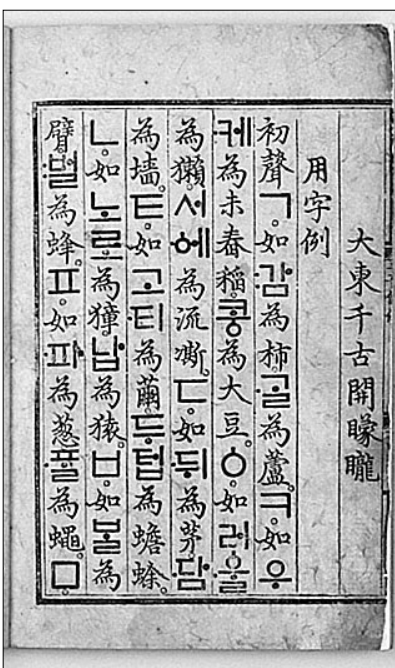 大東千古開矇矓
用字例
初聲ㄱ。如감為柿。ᄀᆞᆯ為蘆。ㅋ。如우
케為未舂稲。콩為大豆。ㆁ。如러ᅌᅮᆯ
為獺。서ᅌᅦ為流凘。ㄷ。如뒤為茅。담
為墻。ㅌ。如고티為繭。두텁為蟾蜍。
ㄴ。如노로為獐。납為猿。ㅂ。如ᄇᆞᆯ為
臂。벌為蜂。ㅍ。如파為葱。ᄑᆞᆯ為蠅。ㅁ